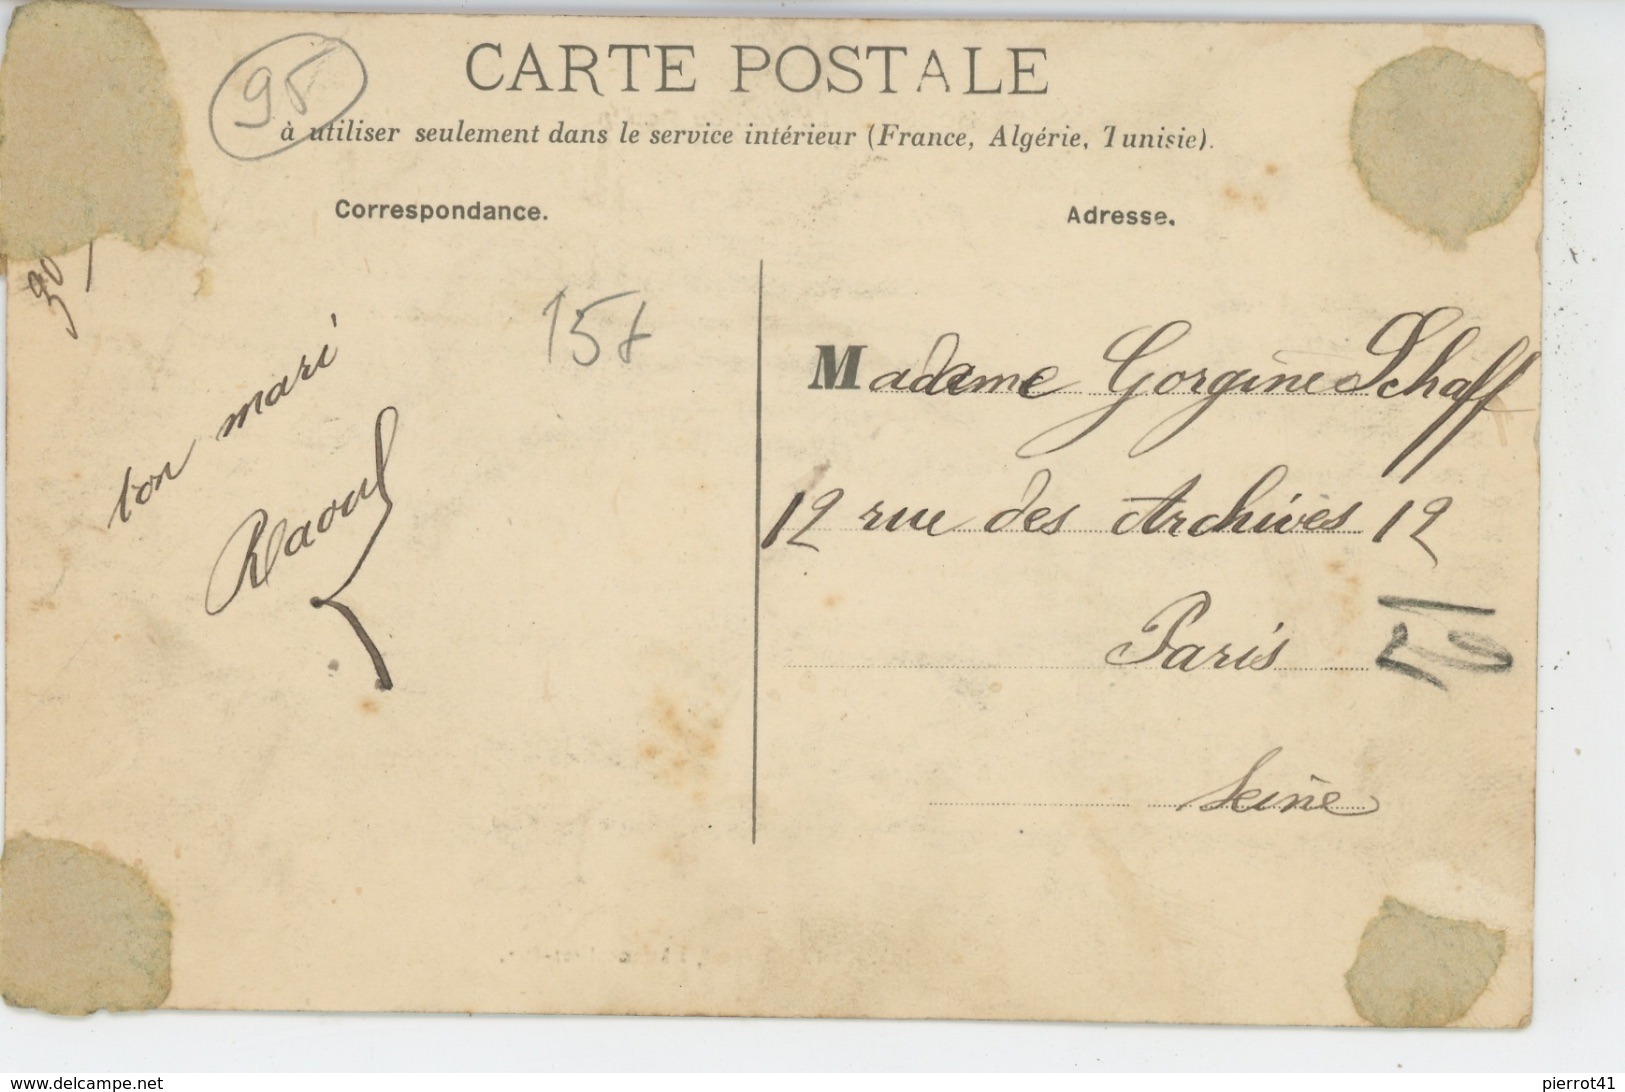 CARTE POSTALE
95
à utiliser seulement dans le service intérieur (France, Algérie, Tunisie).
Correspondance.
Adresse.
30
15f
ton mari
Raoul
Madame Gorgine Schaff
12 rue des Archives 12
Paris
Seine
www.delcampe.net
pierrot41